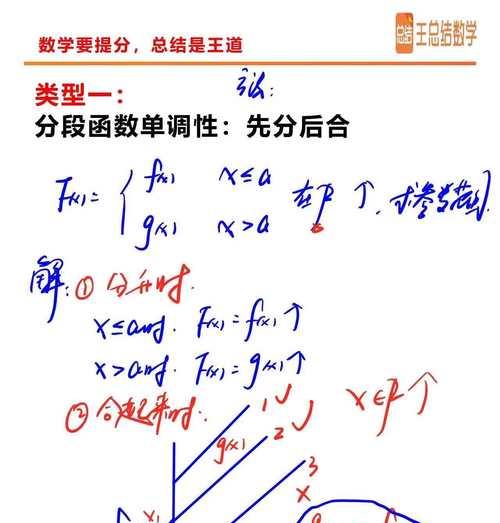 数学要提分，总结是王道
总结 王总结数学
类型一：
分段函数单调性：先分后合
F(x)= { f(x) x≤a
g(x) x>a 在R ↑, 求参
解: ① 分开时.
x≤a时. F(x)=f(x)↑
x>a时. F(x)=g(x)↑
② 合起来时. x∈R ↑
1 ✓
g(x) 2 ✓
3
x